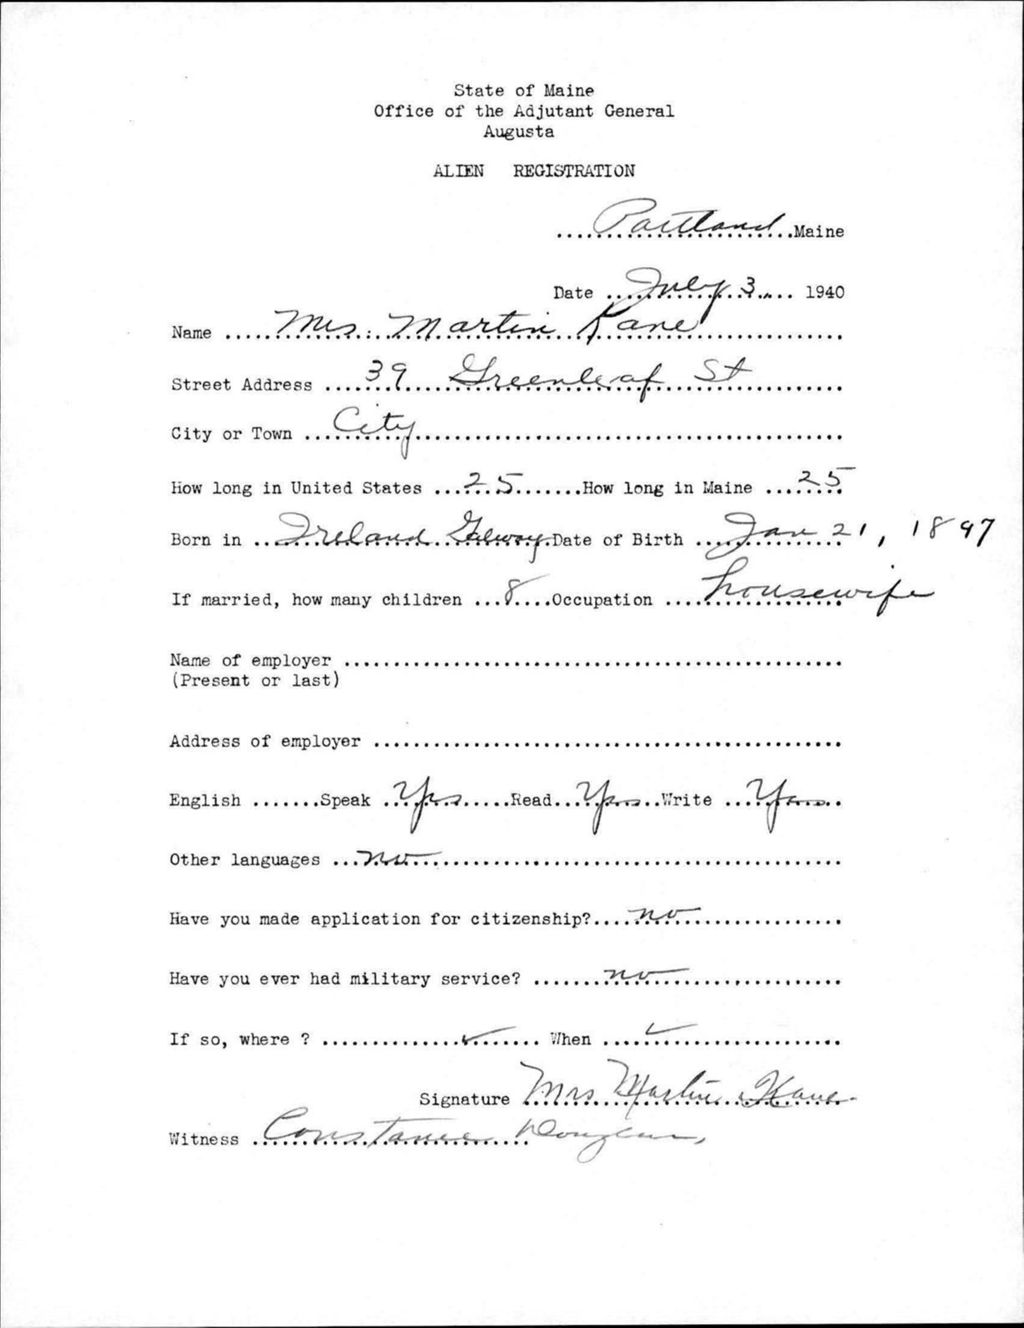 State of Maine
Office of the Adjutant General
Augusta
ALIEN REGISTRATION
Portland Maine
Date July 3 1940
Name Mrs. Martin Kane
Street Address 39 Greenleaf St
City or Town City
How long in United States 25 How long in Maine 25
Born in Ireland Galway Date of Birth Jan 21, 1897
If married, how many children 8 Occupation housewife
Name of employer
(Present or last)
Address of employer
English Speak Yes Read Yes Write Yes
Other languages no
Have you made application for citizenship? no
Have you ever had military service? no
If so, where ? ✓ When ✓
Signature Mrs Martin Kane
Witness Constance